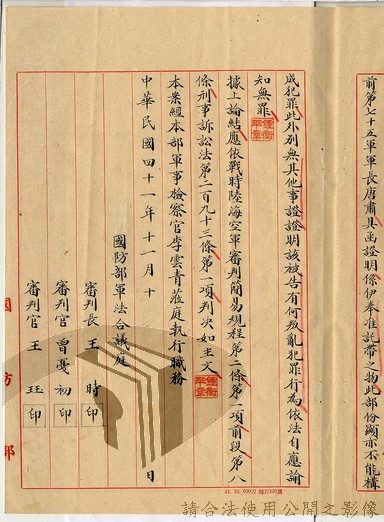 前第七十五軍軍長唐肅具函證明係伊奉准託帶之物此部份顯亦不能構
成犯罪此外別無其他事證證明該被告有何叛亂犯罪行為依法自應諭
知無罪
據上論結應依戰時陸海空軍審判簡易規程第二條第一項前段第八
條刑事訴訟法第二百九十三條第一項判決如主文
本案經本部軍事檢察官李雲青蒞庭執行職務
中華民國四十一年十一月十日
國防部軍法合議庭
審判長王 時印
審判官曾憂初印
審判官王 珏印
國防部
請合法使用公開之影像